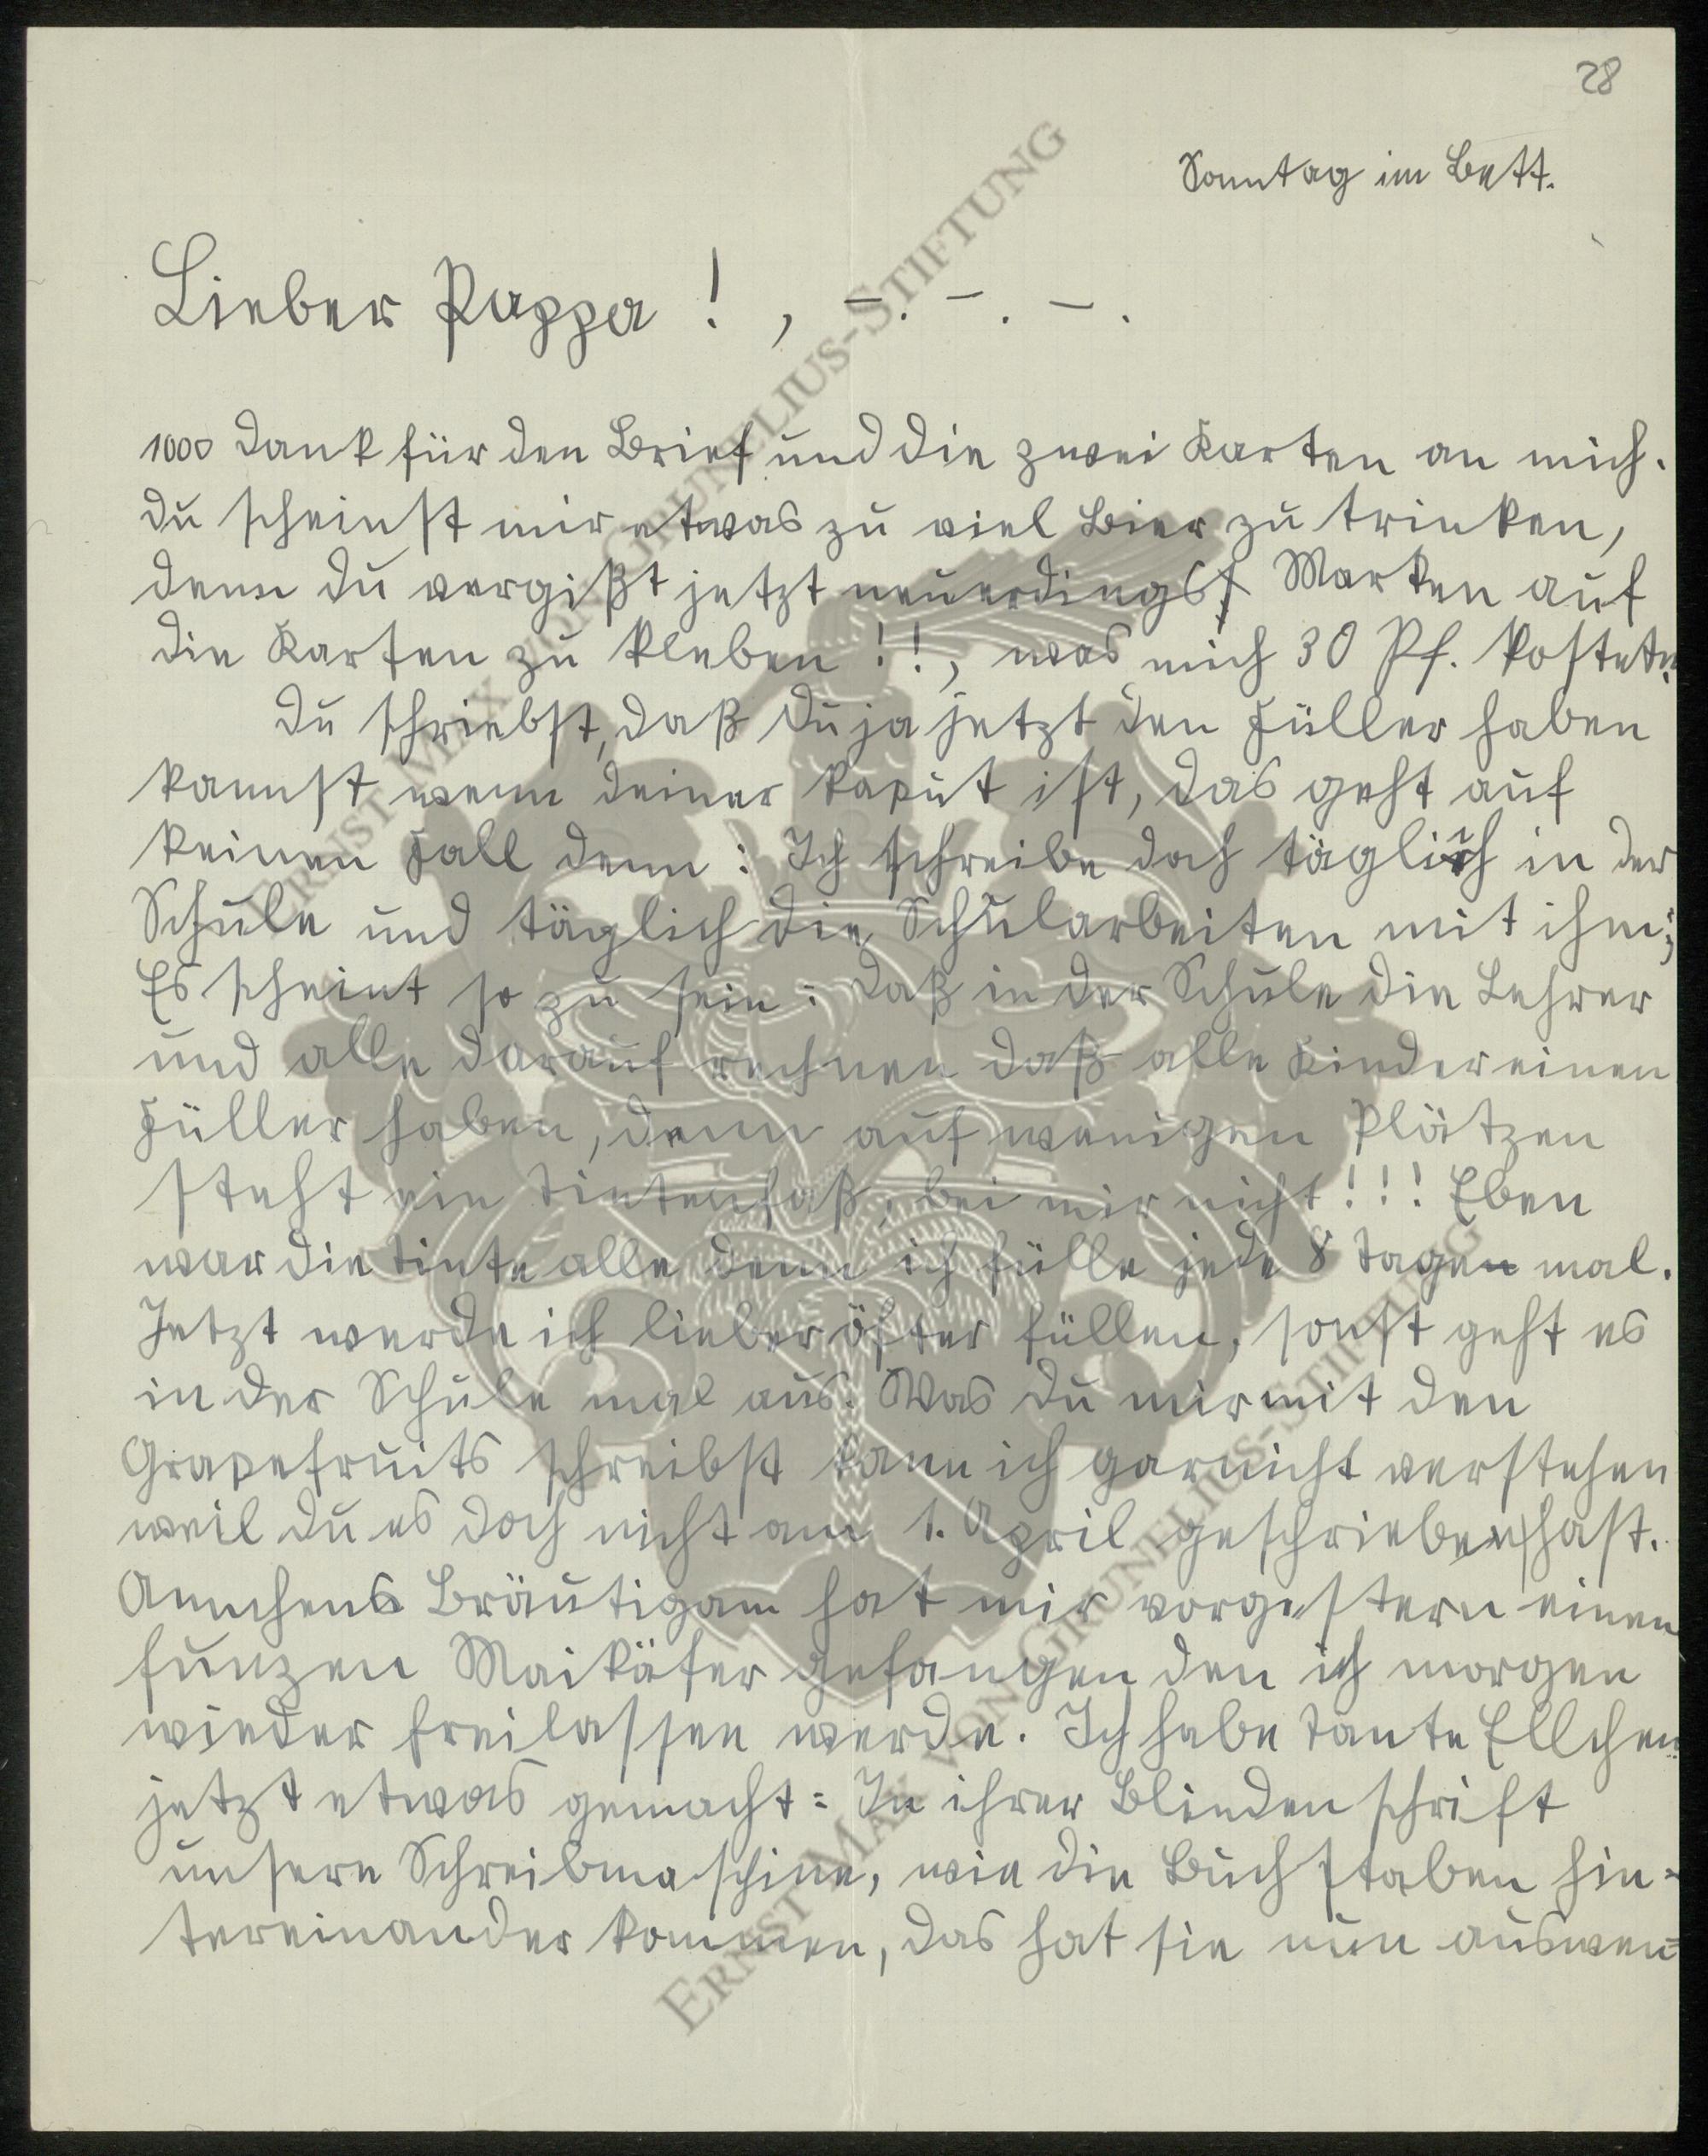 28
Sonntag im Bett.
Lieber Pappa ! , –. –. –.
1000 Dank für den Brief und die zwei Karten an mich.
Du scheinst mir etwas zu viel Bier zu trinken,
denn du vergißt jetzt neuerdings Marken auf
die Karten zu kleben !!, was mich 30 Pf. kostete.
Du schriebst, daß du ja jetzt den Füller haben
kannst wenn deiner kaput ist, das geht auf
keinen Fall denn: Ich schreibe doch täglich in der
Schule und täglich die Schularbeiten mit ihm;
Es scheint so zu sein: daß in der Schule die Lehrer
und alle darauf rechnen daß alle Kinder einen
Füller haben, denn auf wenigen Plätzen
steht ein Tintenfaß, bei mir nicht!!! Eben
war die Tinte alle denn ich fülle jede 8 Tage mal.
Jetzt werde ich lieber öfter füllen, sonst geht es
in der Schule mal aus. Was du mir mit den
Grapefruits schreibst kann ich garnicht verstehen
weil du es doch nicht am 1. April geschrieben hast.
Annchens Bräutigam hat mir vorgestern einen
Maikäfer gefangen den ich morgen
wieder freilassen werde. Ich habe Tante Ellchen
jetzt etwas gemacht: In ihrer Blindenschrift
unsere Schreibmaschine, wie die Buchstaben hin=
tereinander kommen, das hat sie nun auswen=
ERNST MAX VON GRUNELIUS-STIFTUNG
ERNST MAX VON GRUNELIUS-STIFTUNG